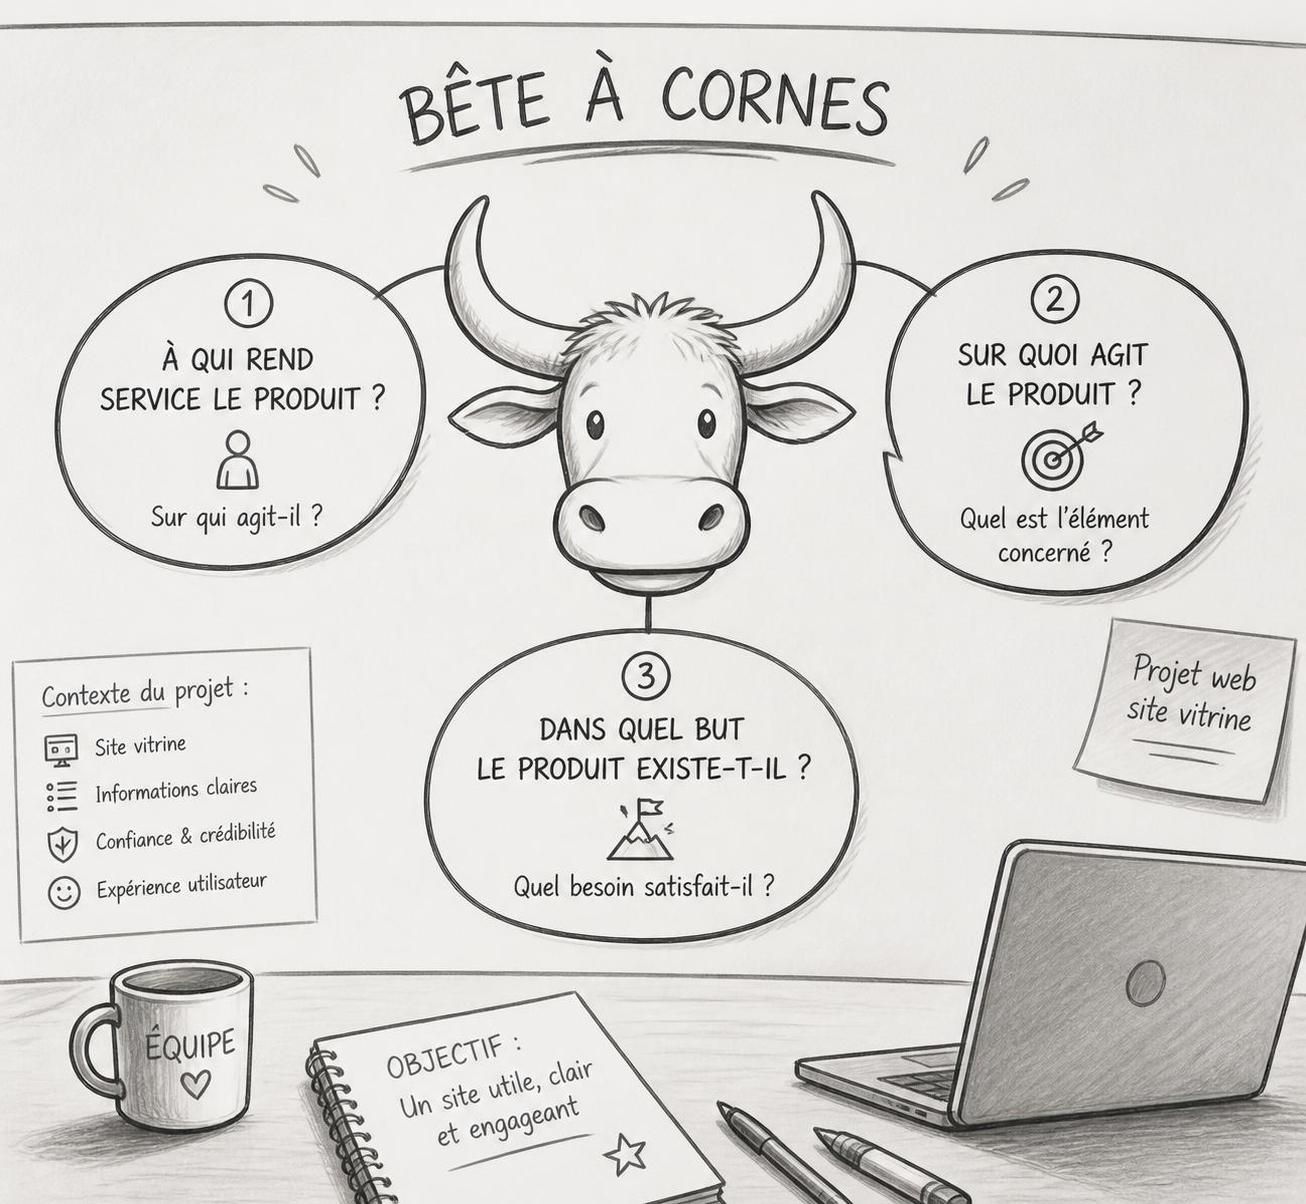 BÊTE À CORNES
1
À QUI REND
SERVICE LE PRODUIT ?
Sur qui agit-il ?
2
SUR QUOI AGIT
LE PRODUIT ?
Quel est l'élément
concerné ?
3
DANS QUEL BUT
LE PRODUIT EXISTE-T-IL ?
Quel besoin satisfait-il ?
Contexte du projet :
Site vitrine
Informations claires
Confiance & crédibilité
Expérience utilisateur
Projet web
site vitrine
ÉQUIPE
OBJECTIF :
Un site utile, clair
et engageant